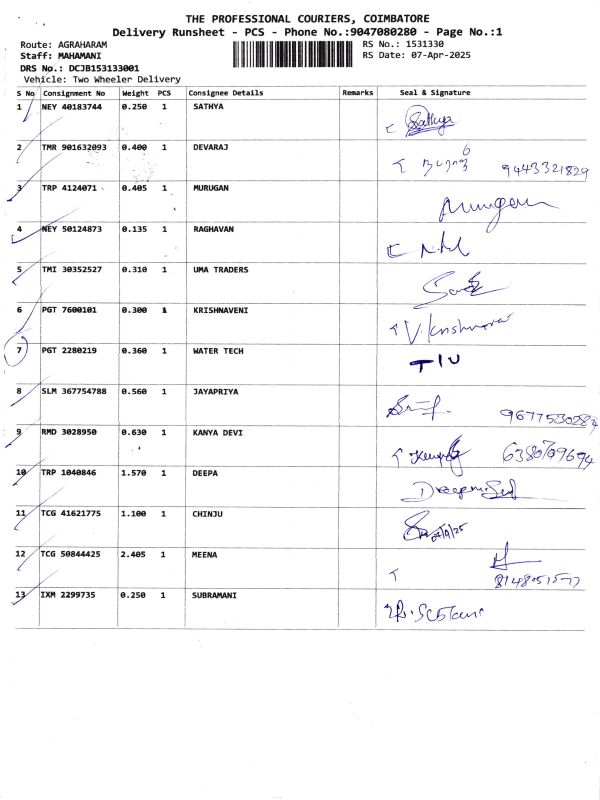 THE PROFESSIONAL COURIERS, COIMBATORE
Delivery Runsheet - PCS - Phone No.:9047080280 - Page No.:1
Route: AGRAHARAM RS No.: 1531330
Staff: MAHAMANI RS Date: 07-Apr-2025
DRS No.: DCJB153133001
Vehicle: Two Wheeler Delivery
S No Consignment No Weight PCS Consignee Details Remarks Seal & Signature
1 NEY 40183744 0.250 1 SATHYA Sathya
2 TMR 901632093 0.400 1 DEVARAJ 9443321829
3 TRP 4124071 0.405 1 MURUGAN Murugan
4 NEY 50124873 0.135 1 RAGHAVAN
5 TMI 30352527 0.310 1 UMA TRADERS
6 PGT 7600101 0.300 1 KRISHNAVENI
7 PGT 2280219 0.360 1 WATER TECH
8 SLM 367754788 0.560 1 JAYAPRIYA
9 RMD 3028950 0.630 1 KANYA DEVI
10 TRP 1040846 1.570 1 DEEPA
11 TCG 41621775 1.100 1 CHINJU
12 TCG 50844425 2.405 1 MEENA
13 IXM 2299735 0.250 1 SUBRAMANI